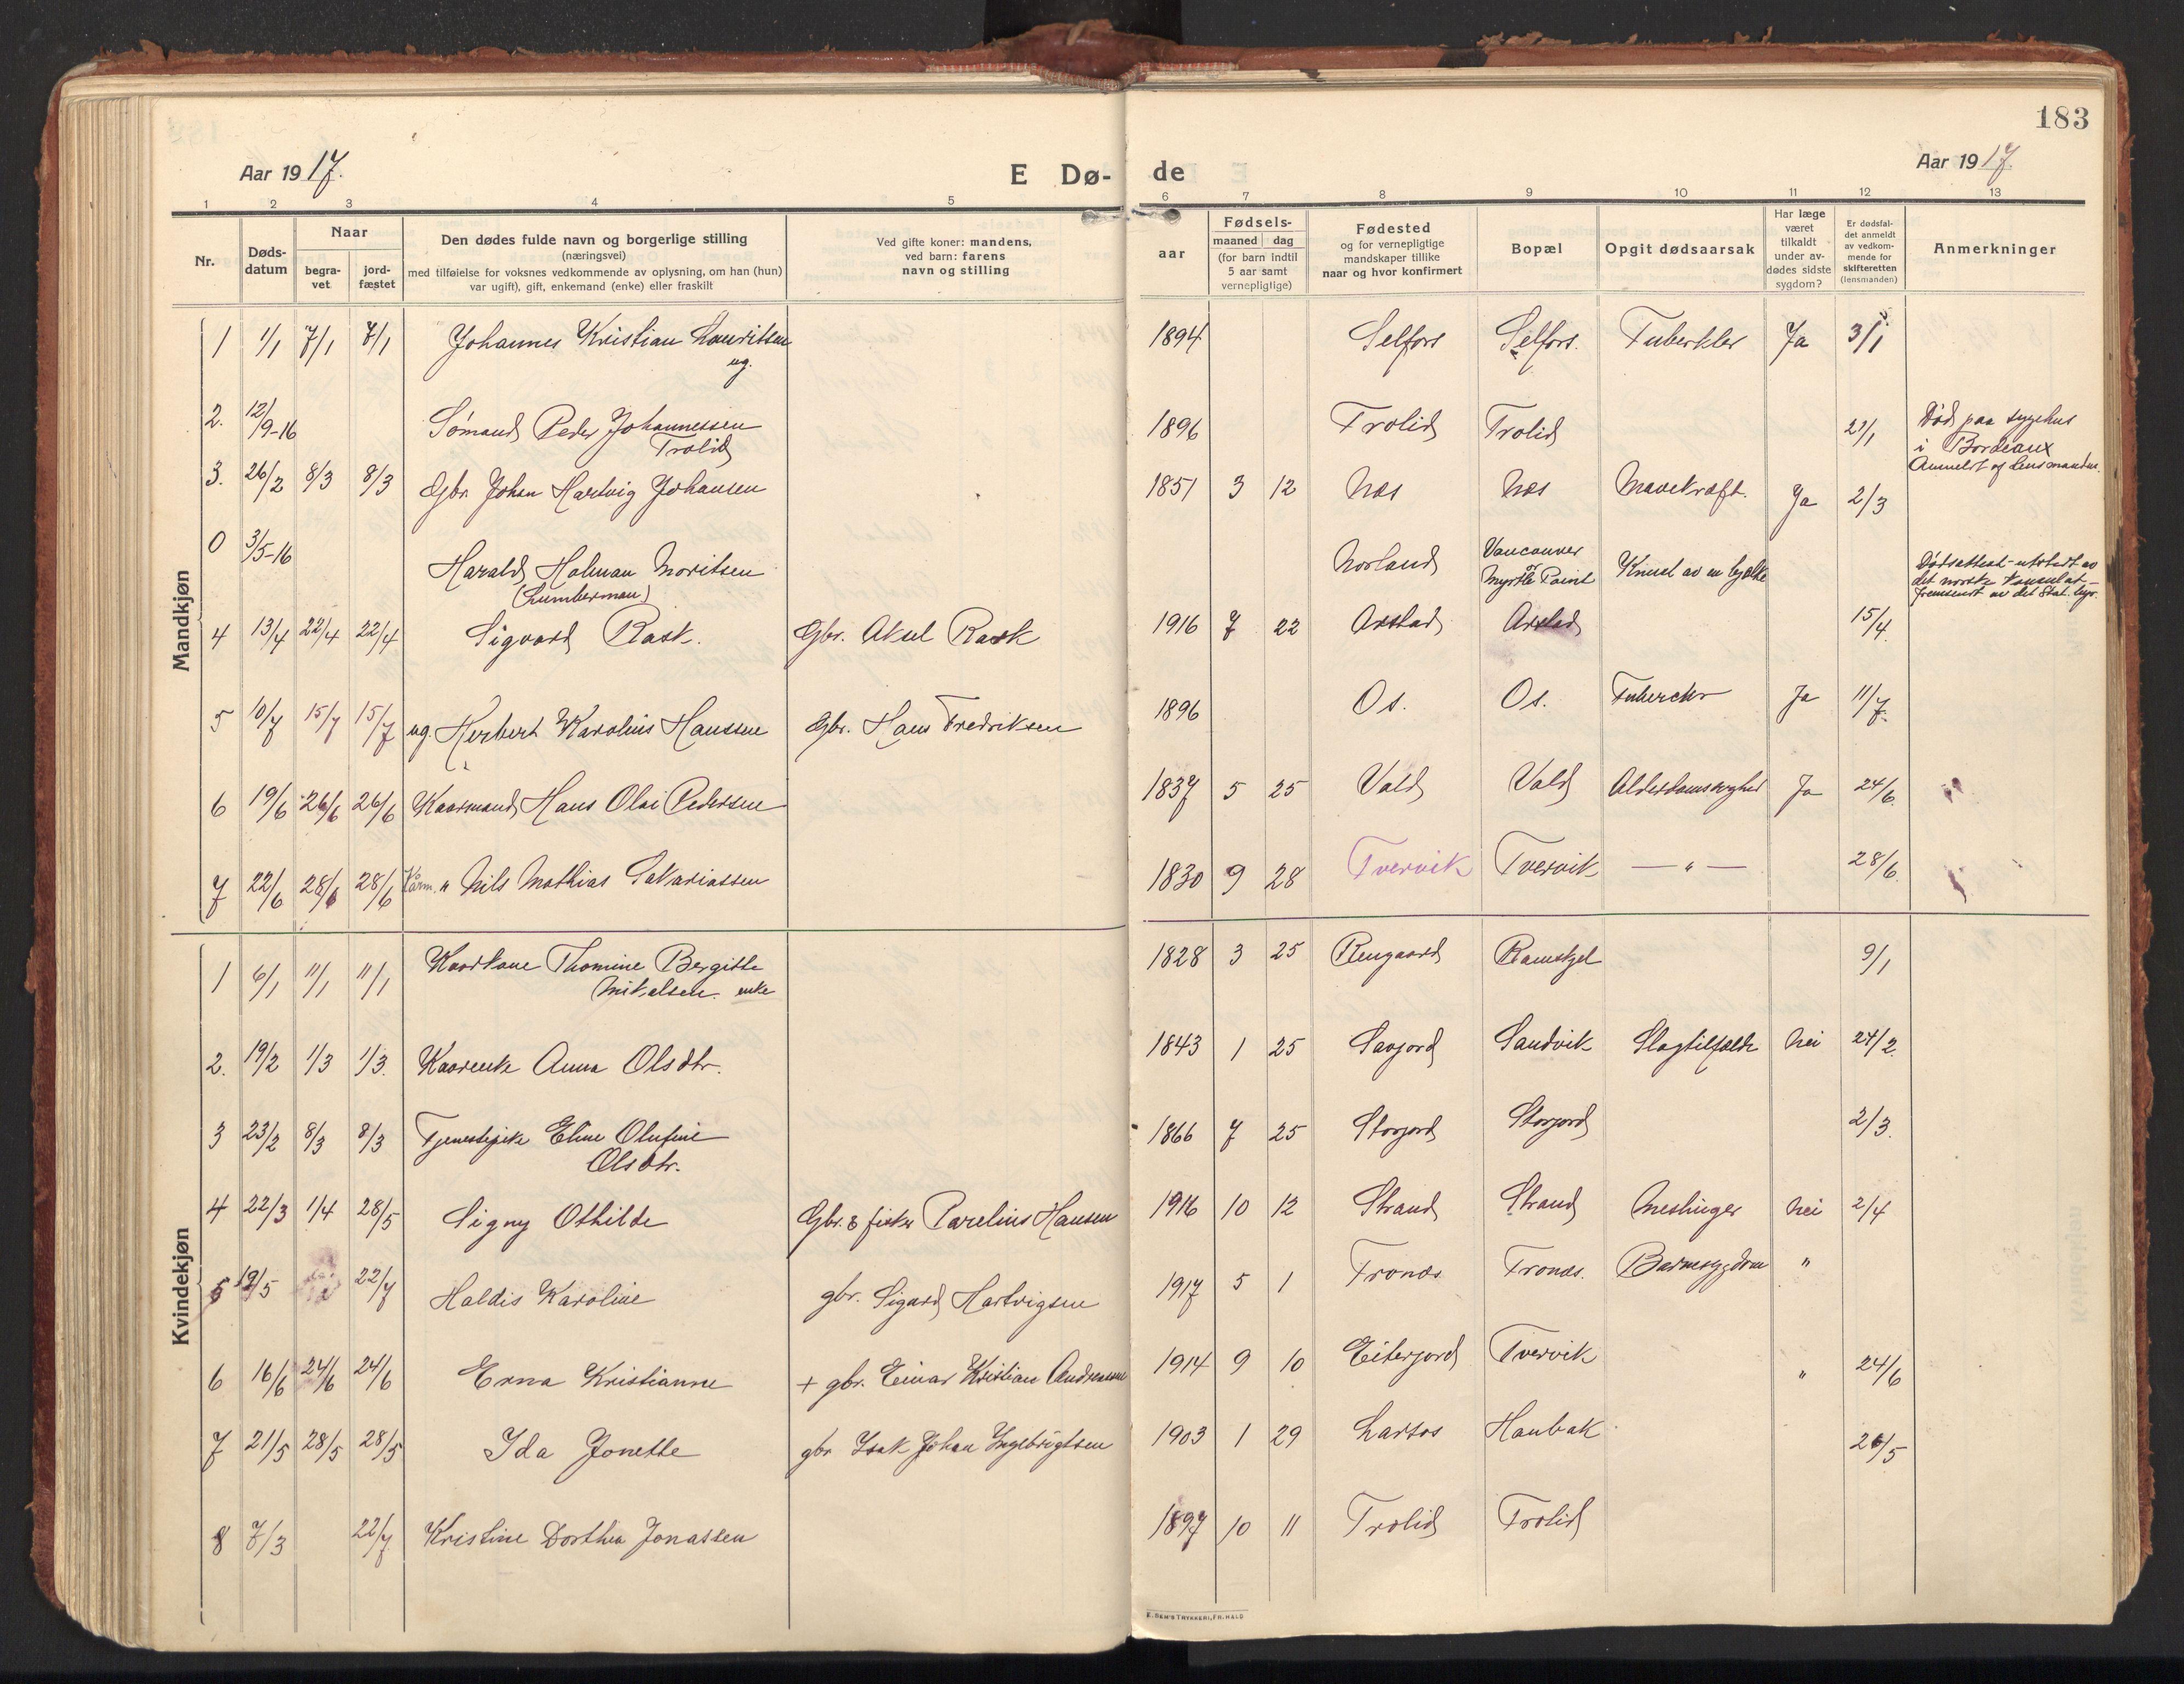 183
Aar 1917. E Dø- de Aar 1917.
1 2 3 4 5 6 7 8 9 10 11 12 13
Nr.
Døds-
datum
Naar
begra-
vet
jord-
fæstet
Den dødes fulde navn og borgerlige stilling
(næringsvei)
med tilføielse for voksnes vedkommende av oplysning, om han (hun)
var ugift), gift, enkemand (enke) eller fraskilt
Ved gifte koner: mandens,
ved barn: farens
navn og stilling
aar
Fødsels-
maaned dag
(for barn indtil
5 aar samt
vernepligtige)
Fødested
og for vernepligtige
mandskaper tillike
naar og hvor konfirmert
Bopæl
Opgit dødsaarsak
Har læge
været
tilkaldt
under av-
dødes sidste
sygdom?
Er dødsfal-
det anmeldt
av vedkom-
mende for
skifteretten
(lensmanden)
Anmerkninger
Mandkjøn
1 1/1 7/1 7/1 Johannes Kristian Lauritsen 1894 Selfors Selfors. Tuberkler Ja 3/1
ug.
2. 12/9-16 Sømand Peder Johannessen 1896 Trolid Trolid 21/1 Død paa sygehus
Trolid i Bordeaux
Anmeldt af lensmanden.
3. 26/2 8/3 8/3 Gbr. Johan Hartvig Johansen 1851 3 12 Næs Næs Mavekræft. Ja 2/3
0 3/5-16 Harald Holman Moritsen Norland Vancouver Knust av en bjælke Dødsattest utstedt av
(Lumberman) Myrtle Point det norske konsulat
fremsendt av det Stat. byr.
4 13/4 22/4 22/4 Sigvard Rask. Gbr. Aksel Rask 1916 7 22 Arstad Arstad 15/4.
5 10/7 15/7 15/7 ug. Herbert Karolius Hanssen Gbr. Hans Fredriksen 1896 Os. Os. Tuberkler Ja 11/7.
6 19/6 26/6 26/6 Kaarmand Hans Olai Pedersen 1837 5 25 Vald Vald Alderdomssvaghed Ja 24/6.
7 22/6 28/6 28/6 Kårm. " Nils Mathias Sakariassen 1830 9 28 Tvervik Tvervik — " — 28/6.
Kvindekjøn
1 6/1 11/1 11/1 Kaarkone Thomine Bergitte 1828 3 25 Rengaard Ramskjel 9/1
Mikalsen. enke
2. 19/2 1/3 1/3. Kaarenke Anna Olsdtr. 1843 1 25 Savjord Sandvik Slagtilfælde Nei 24/2.
3 23/2 8/3 8/3 Tjenestepike Eline Olufine 1866 7 25 Storjord Storjord 2/3.
Olsdtr.
4 22/3 1/4 28/5 Signy Othilde Gbr. & fisker Parelius Hansen 1916 10 12 Strand Strand Meslinger Nei 2/4
5 19/5 22/7 Haldis Karoline gbr. Sigurd Hartvigsen 1917 5 1 Trones. Trones. Barnesygdom "
6 16/6 24/6 24/6 Erna Kristianne + gbr. Einar Kristian Andreassen 1914 9 10 Eiterjord Tvervik " 24/6
7 21/5 28/5 28/5 Ida Jonette gbr Isak Johan Ingebrigtsen 1903 1 29 Larsos Haubak 26/5
8 7/3 22/7 Kristine Dorthea Jonassen 1897 10 11 Trolid Trolid
E. SEM'S TRYKKERI, FR.HALD